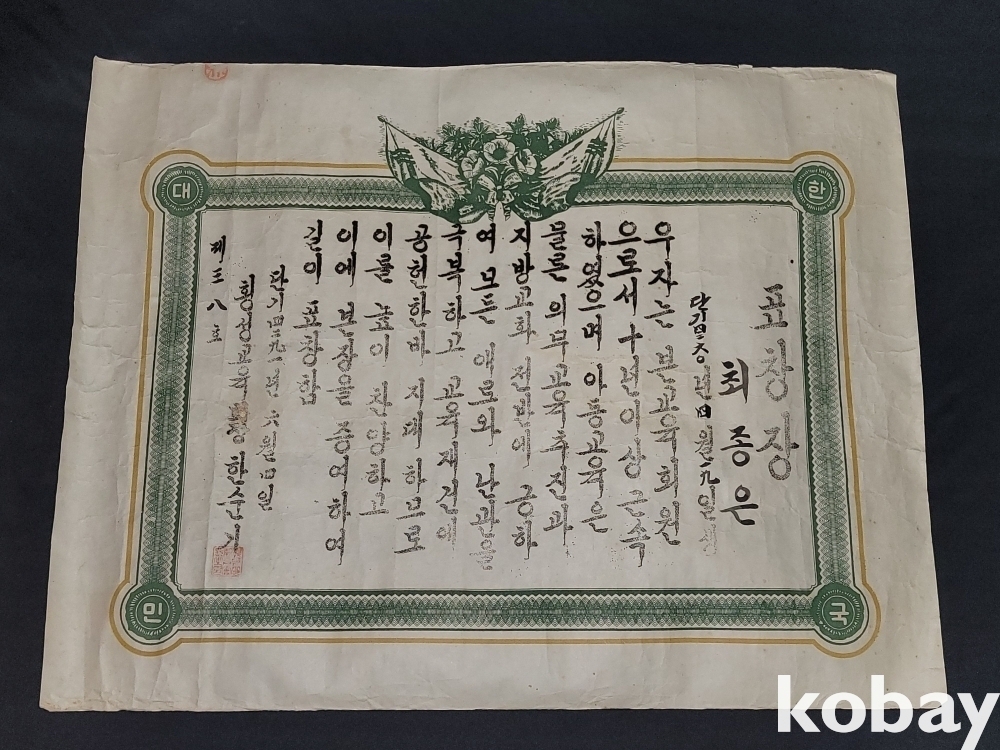 한
대
국
민
표창장
최종은
四월一九일생
우자는 본교육회원
으로서 十년이상 근속
하였으며 아동교육은
물론 의무교육추진과
지방교화 전반에 긍하
여 모든 애로와 난관을
극복하고 교육재건에
공헌한바 지대하므로
이를 높이 찬양하고
이에 본장을 증여하여
길이 표창함
단기四二九一년 六월四일
횡성교육 한순기
제三八호
kobay